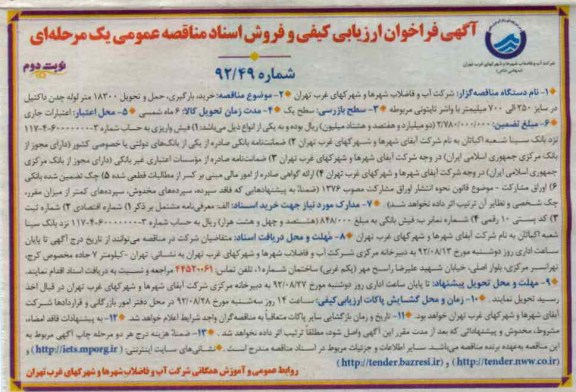 آگهی فراخوان ارزیابی کیفی و فروش اسناد مناقصه عمومی یک مرحله‌ای
شرکت آب و فاضلاب شهرها و شهرکهای غرب تهران
(سهامی خاص)
نوبت دوم
شماره ۹۲/۴۹
۱- نام دستگاه مناقصه‌گزار: شرکت آب و فاضلاب شهرها و شهرکهای غرب تهران ۲- موضوع مناقصه: خرید، بارگیری، حمل و تحویل ۱۸۳۰۰ متر لوله چدن داکتیل
در سایز ۲۵۰ الی ۷۰۰ میلیمتر با واشر تایتونی مربوطه ۳- سطح بازرسی: سطح یک ۴- مدت زمان تحویل کالا: ۶ ماه شمسی ۵- محل اعتبار: اعتبارات جاری
۶- مبلغ تضمین: ۲/۷۸۰/۰۰۰/۰۰۰ (دو میلیارد و هفتصد و هشتاد میلیون) ریال بوده و به یکی از انواع ذیل می‌باشد: ۱) فیش واریزی به حساب شماره ۳-۱۱۷-۴۰۶۰۰۰۰۰۰۰
نزد بانک سینا شعبه اکباتان به نام شرکت آبفای شهرها و شهرکهای غرب تهران ۲) ضمانت‌نامه بانکی صادره از یکی از بانک‌های دولتی یا خصوصی کشور (دارای مجوز از
بانک مرکزی جمهوری اسلامی ایران) در وجه شرکت آبفای شهرها و شهرکهای غرب تهران ۳) ضمانت‌نامه صادره از مؤسسات اعتباری غیر بانکی (دارای مجوز از بانک مرکزی
جمهوری اسلامی ایران) در وجه شرکت آبفای شهرها و شهرکهای غرب تهران ۴) ارائه گواهی صادره از امور مالی مبنی بر کسر از مطالبات قطعی شده ۵) چک تضمین شده بانکی
۶) اوراق مشارکت - موضوع قانون نحوه انتشار اوراق مشارکت مصوب ۱۳۷۶ (ضمناً به پیشنهادهایی که فاقد سپرده، سپرده‌های مخدوش، سپرده‌های کمتر از میزان مقرر،
چک شخصی و نظایر آن ترتیب اثر داده نخواهد شد). ۷- مدارک مورد نیاز جهت خرید اسناد: الف: معرفی‌نامه مشتمل بر ذکر ۱) شماره اقتصادی ۲) شماره ثبت
۳) کد پستی ۱۰ رقمی ۴) شماره نمابر ب: فیش بانکی به مبلغ ۸۴۸/۰۰۰ (هشتصد و چهل و هشت هزار) ریال به حساب شماره ۳-۱۱۷-۴۰۶۰۰۰۰۰۰۰ نزد بانک سینا
شعبه اکباتان به نام شرکت آبفای شهرها و شهرکهای غرب تهران ۸- مهلت و محل دریافت اسناد: متقاضیان شرکت در مناقصه می‌توانند از تاریخ درج آگهی تا پایان
ساعت اداری روز دوشنبه مورخ ۹۲/۰۸/۱۳ به دبیرخانه مرکزی شرکت آب و فاضلاب شهرها و شهرکهای غرب تهران به نشانی: تهران - کیلومتر ۷ جاده مخصوص کرج،
تهرانسر مرکزی، بلوار اصلی، خیابان شهید علیرضا راسخ مهر (یکم غربی) ساختمان شماره ۱، تلفن تماس: ۴۴۵۲۰۰۶۱ مراجعه و نسبت به دریافت اسناد اقدام نمایند.
۹- مهلت و محل تحویل پیشنهاد: تا پایان ساعت اداری روز دوشنبه مورخ ۹۲/۰۸/۲۷ به دبیرخانه مرکزی شرکت آبفای شهرها و شهرکهای غرب تهران در قبال اخذ
رسید تحویل نمایند. ۱۰- زمان و محل گشایش پاکات ارزیابی کیفی: ساعت ۱۴ روز سه‌شنبه مورخ ۹۲/۰۸/۲۸ در محل دفتر امور بازرگانی و قراردادها شرکت
آبفای شهرها و شهرکهای غرب تهران خواهد بود. ۱۱- تاریخ و زمان بازگشایی سایر پاکات متعاقباً به مناقصه‌گران واجد شرایط اعلام خواهد شد. ۱۲- به پیشنهادات فاقد امضاء،
مشروط، مخدوش و پیشنهاداتی که بعد از مدت مقرر این آگهی واصل شود، مطلقاً ترتیب اثر داده نخواهد شد. ۱۳- ضمناً: هزینه درج هر دو مرحله چاپ آگهی مربوط به
این مناقصه به‌عهده برنده مناقصه می‌باشد. سایر اطلاعات و جزئیات مربوط در اسناد مناقصه مندرج است. نشانی‌های سایت اینترنتی (http://iets.mporg.ir) و
(http://tender.nww.co.ir) و (http://tender.bazresi.ir)
روابط عمومی و آموزش همگانی شرکت آب و فاضلاب شهرها و شهرکهای غرب تهران